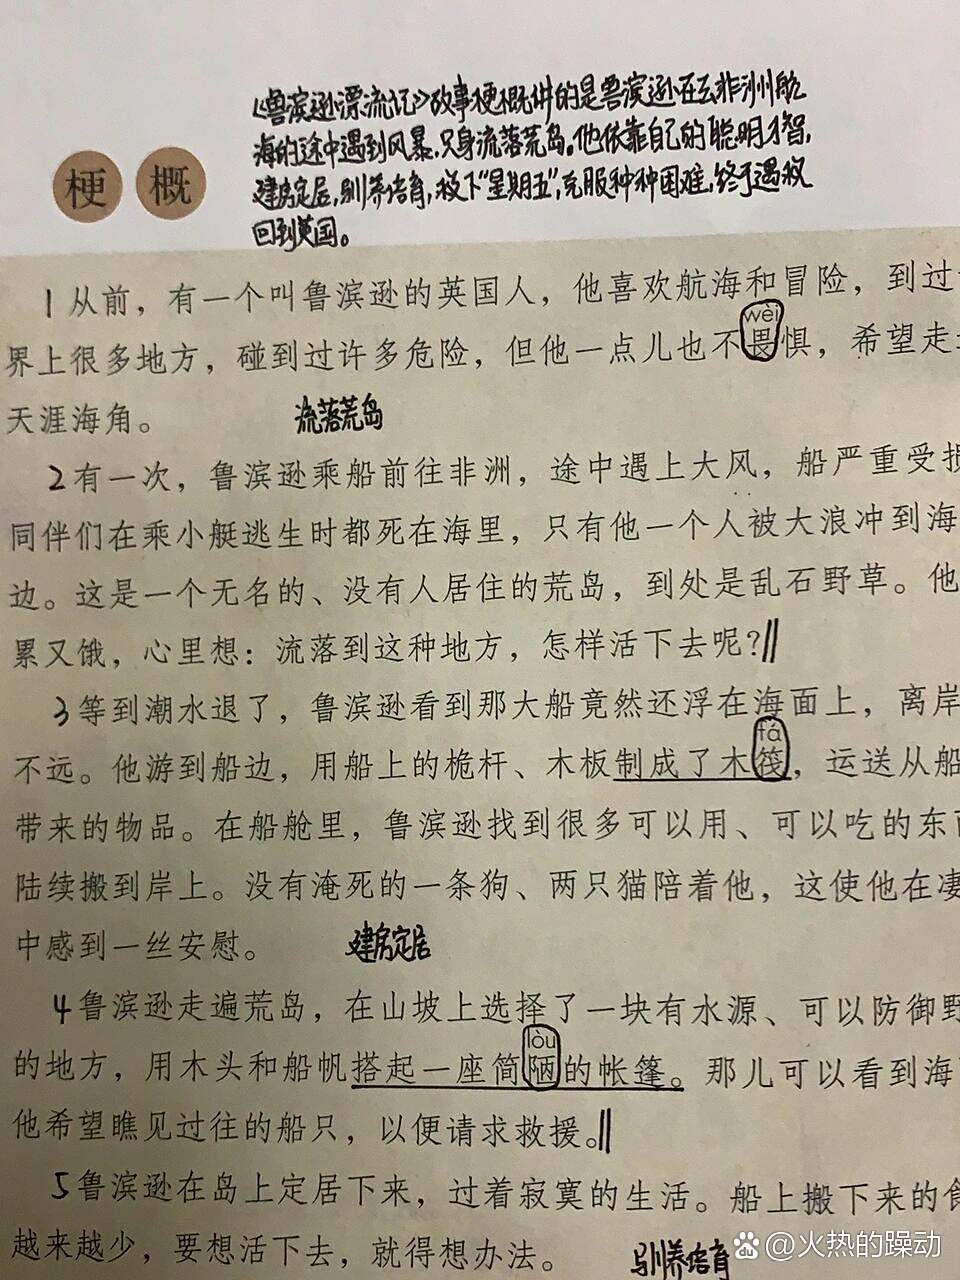 《鲁滨逊漂流记》故事梗概讲的是鲁滨逊在去非洲航
海的途中遇到风暴,只身流落荒岛。他依靠自己的聪明才智,
建房定居,驯养培育,救下“星期五”,克服种种困难,终于遇救
回到英国。
梗概
1从前，有一个叫鲁滨逊的英国人，他喜欢航海和冒险，到过
wèi
界上很多地方，碰到过许多危险，但他一点儿也不畏惧，希望走
天涯海角。
流落荒岛
2有一次，鲁滨逊乘船前往非洲，途中遇上大风，船严重受损
同伴们在乘小艇逃生时都死在海里，只有他一个人被大浪冲到海
边。这是一个无名的、没有人居住的荒岛，到处是乱石野草。他
累又饿，心里想：流落到这种地方，怎样活下去呢？
3等到潮水退了，鲁滨逊看到那大船竟然还浮在海面上，离岸
fá
不远。他游到船边，用船上的桅杆、木板制成了木筏，运送从船
带来的物品。在船舱里，鲁滨逊找到很多可以用、可以吃的东西
陆续搬到岸上。没有淹死的一条狗、两只猫陪着他，这使他在凄
中感到一丝安慰。
建房定居
4鲁滨逊走遍荒岛，在山坡上选择了一块有水源、可以防御野
lòu
的地方，用木头和船帆搭起一座简陋的帐篷。那儿可以看到海
他希望瞧见过往的船只，以便请求救援。
5鲁滨逊在岛上定居下来，过着寂寞的生活。船上搬下来的食
越来越少，要想活下去，就得想办法。
驯养培育
@火热的躁动